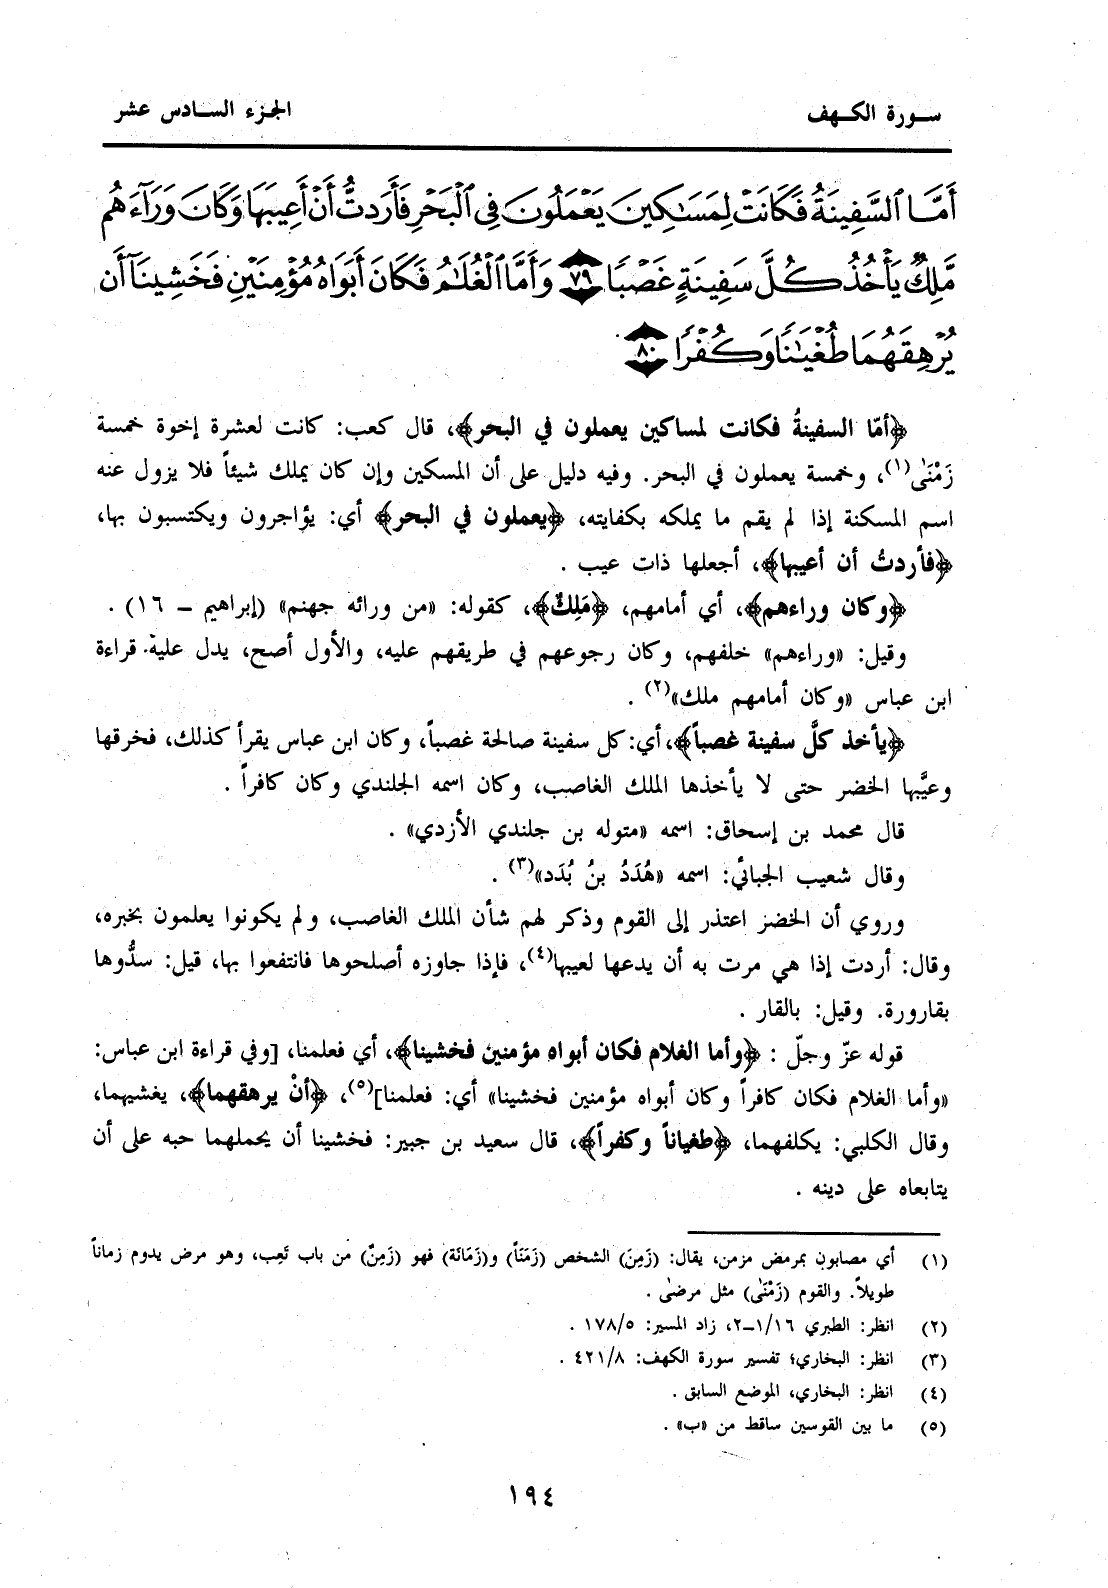 سورة الكهف
الجزء السادس عشر
أَمَّا ٱلسَّفِينَةُ فَكَانَتْ لِمَسَٰكِينَ يَعْمَلُونَ فِى ٱلْبَحْرِ فَأَرَدتُّ أَنْ أَعِيبَهَا وَكَانَ وَرَآءَهُم
مَّلِكٌ يَأْخُذُ كُلَّ سَفِينَةٍ غَصْبًا ٧٩ وَأَمَّا ٱلْغُلَٰمُ فَكَانَ أَبَوَاهُ مُؤْمِنَيْنِ فَخَشِينَآ أَن
يُرْهِقَهُمَا طُغْيَٰنًا وَكُفْرًا ٨٠
﴿أمّا السفينةُ فكانت لمساكين يعملون في البحر﴾، قال كعب: كانت لعشرة إخوة خمسة
زَمْنَى(١)، وخمسة يعملون في البحر. وفيه دليل على أن المسكين وإن كان يملك شيئاً فلا يزول عنه
اسم المسكنة إذا لم يقم ما يملكه بكفايته، ﴿يعملون في البحر﴾ أي: يؤاجرون ويكتسبون بها،
﴿فأردتُ أن أعيبها﴾، أجعلها ذات عيب .
﴿وكان وراءهم﴾، أي أمامهم، ﴿مَلِكٌ﴾، كقوله: «من ورائه جهنم» (إبراهيم – ١٦) .
وقيل: «وراءهم» خلفهم، وكان رجوعهم في طريقهم عليه، والأول أصح، يدل عليه قراءة
ابن عباس «وكان أمامهم ملك»(٢) .
﴿يأخذ كلَّ سفينة غصباً﴾، أي: كل سفينة صالحة غصباً، وكان ابن عباس يقرأ كذلك، فخرقها
وعيَّبها الخضر حتى لا يأخذها الملك الغاصب، وكان اسمه الجلندي وكان كافراً .
قال محمد بن إسحاق: اسمه «متوله بن جلندي الأزدي» .
وقال شعيب الجبائي: اسمه «هُدَدُ بنُ بُدَد»(٣) .
وروي أن الخضر اعتذر إلى القوم وذكر لهم شأن الملك الغاصب، ولم يكونوا يعلمون بخبره،
وقال: أردت إذا هي مرت به أن يدعها لعيبها(٤)، فإذا جاوزه أصلحوها فانتفعوا بها، قيل: سدُّوها
بقارورة. وقيل: بالقار .
قوله عزّ وجلّ : ﴿وأما الغلام فكان أبواه مؤمنين فخشينا﴾، أي فعلمنا، [وفي قراءة ابن عباس:
«وأما الغلام فكان كافراً وكان أبواه مؤمنين فخشينا» أي: فعلمنا](٥)، ﴿أنْ يرهقهما﴾، يغشيهما،
وقال الكلبي: يكلفهما، ﴿طغياناً وكفراً﴾، قال سعيد بن جبير: فخشينا أن يحملهما حبه على أن
يتابعاه على دينه .
(١) أي مصابون بمرض مزمن، يقال: (زَمِنَ) الشخص (زَمَناً) و(زَمَانَة) فهو (زَمِنٌ) من باب تَعِب، وهو مرض يدوم زماناً
طويلاً. والقوم (زَمْنَى) مثل مرضى .
(٢) انظر: الطبري ١/١٦–٢، زاد المسير: ١٧٨/٥ .
(٣) انظر: البخاري؛ تفسير سورة الكهف: ٤٢١/٨ .
(٤) انظر: البخاري، الموضع السابق .
(٥) ما بين القوسين ساقط من «ب» .
١٩٤